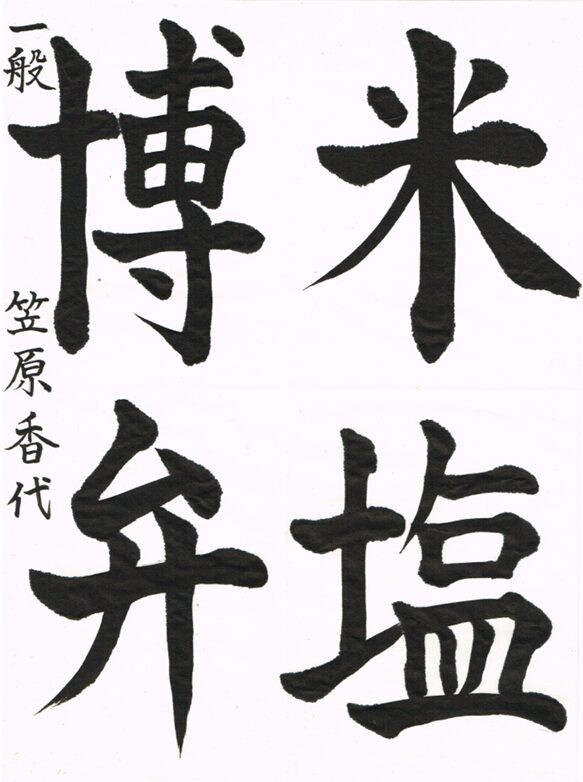 米塩
博弁
一般 笠原香代